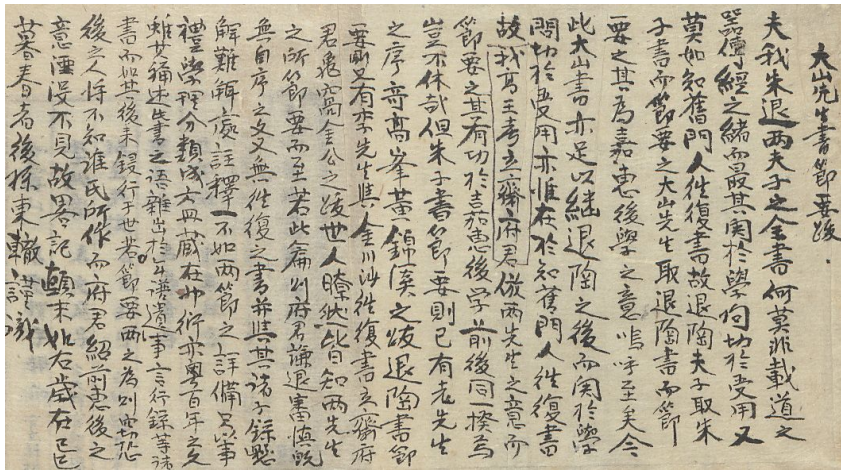 大山先生書節要跋
夫我朱退两夫子之全書何莫非載道之
器傳經之緖而最其関於學問切於受用又
莫如知舊門人徃復書故退陶夫子取朱
子書而節要之大山先生取退陶書而節
要之其爲嘉惠後學之意嗚呼至矣今
此大山書亦足以継退陶之後而関於學
問切於受用亦惟在於知舊門人徃復書
故我高王考立齋府君倣两先生之意而
節要之其有功於嘉惠後学前後同一揆爲
豈不休哉但朱子書節要則已有老先生
之序奇高峯黄錦溪之跋退陶書節
要則又有李先生與金川沙徃復書立齋府
君龜窩金公之跋世人瞭然皆知两先生
之所節要而至若此篇則府君謙退畬慎旣
無自序之文又無徃復之書并與其諸子錄
解難觧處註釋一不如两節之詳備只以事
禮學理分類成六冊藏在巾衍亦粤百年之久
雖其誦述先書之語雜出於年譜遺事言行錄等諸
書而如其後未鋟行于世若節要两之爲則窃恐
後之人将不知誰氏所作而府君紹前惠後之
意湮沒不見故畧記顛末如右歲在己巳
暮春者後孫東轍謹識